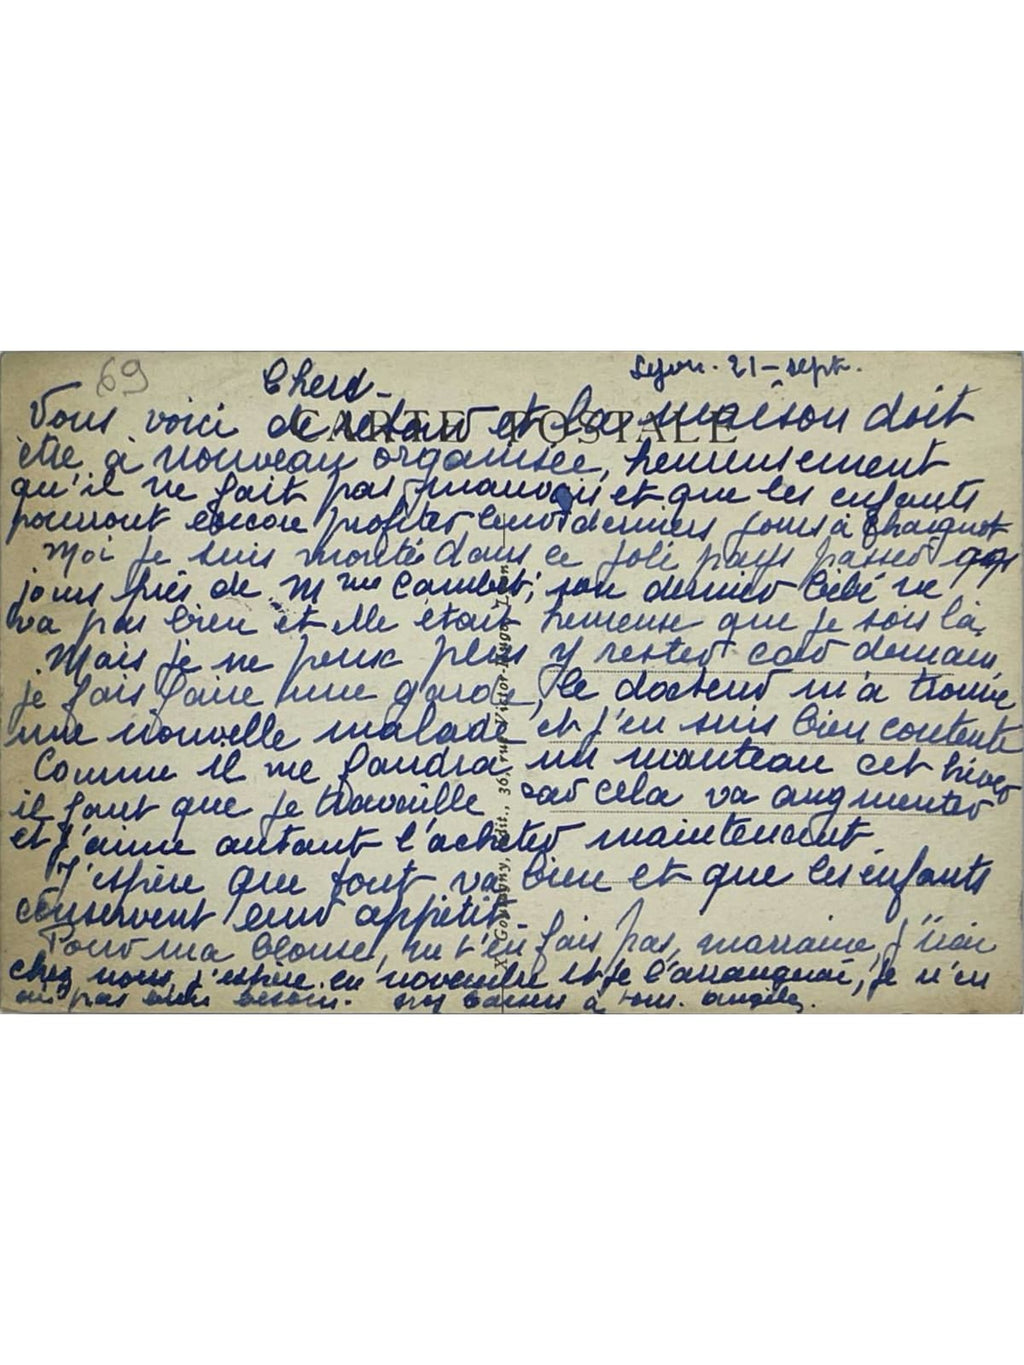 69
Lyon. 21 - sept.
Chers -
CARTE POSTALE
Vous voici de retour et la maison doit
être à nouveau organisée, heureusement
qu'il ne fait pas mauvais et que les enfants
pourront encore profiter leurs derniers jours à
Moi je suis montée dans ce joli pays passer qqs
jours près de Mme Cambet; son dernier bébé ne
va pas bien et elle était heureuse que je sois là.
Mais je ne peux plus y rester car demain,
je fais faire une garde, le docteur m'a trouvé
une nouvelle malade et j'en suis bien contente
Comme il me faudra un manteau cet hiver
il faut que je travaille car cela va augmenter
et j'aime autant l'acheter maintenant.
J'espère que tout va bien et que les enfants
conservent leur appétit.
Pour ma blouse, ne t'en fais pas, marraine, j'irai
chez vous j'espère en novembre et je l'arrangerai, je n'en
ai pas bien besoin. Gros baisers à tous. Angèle.
édit., 36, rue Victor-Hugo, Lyon